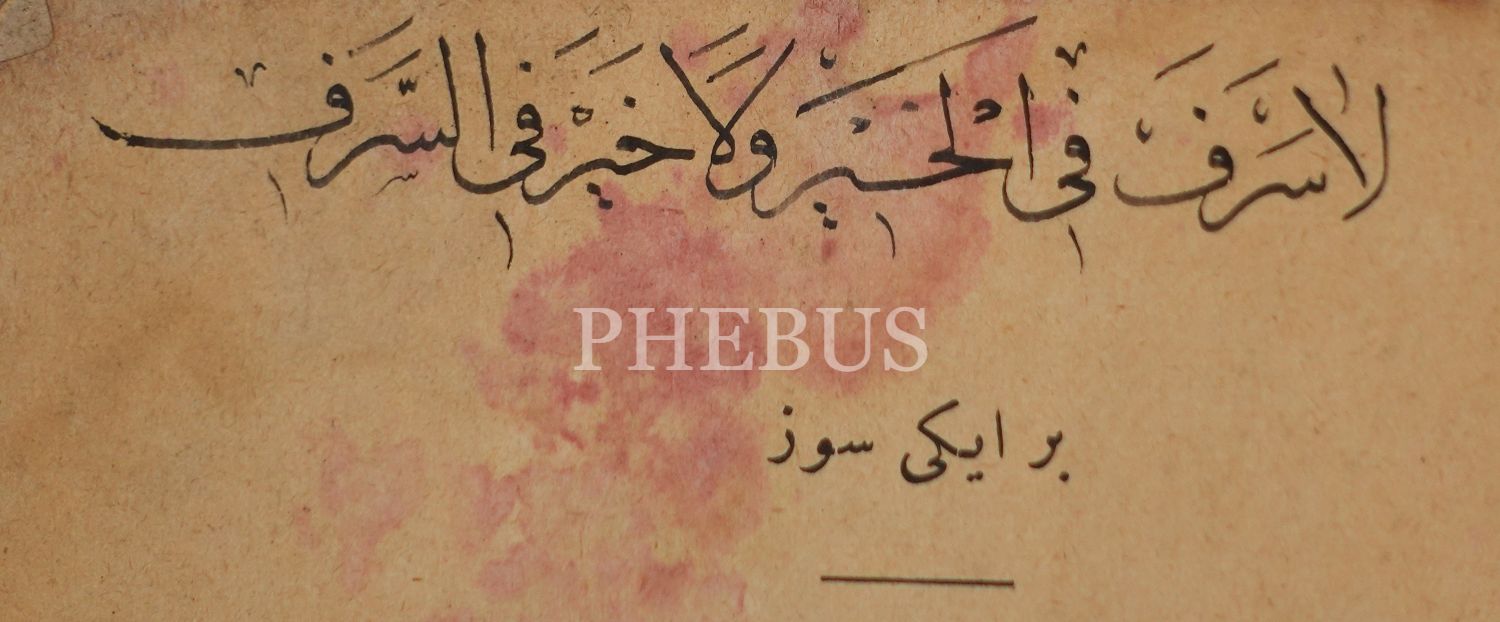 لَا سَرَفَ فِى الْخَيْرِ وَلَا خَيْرَ فِى السَّرَفِ
PHEBUS
بر ايكى سوز